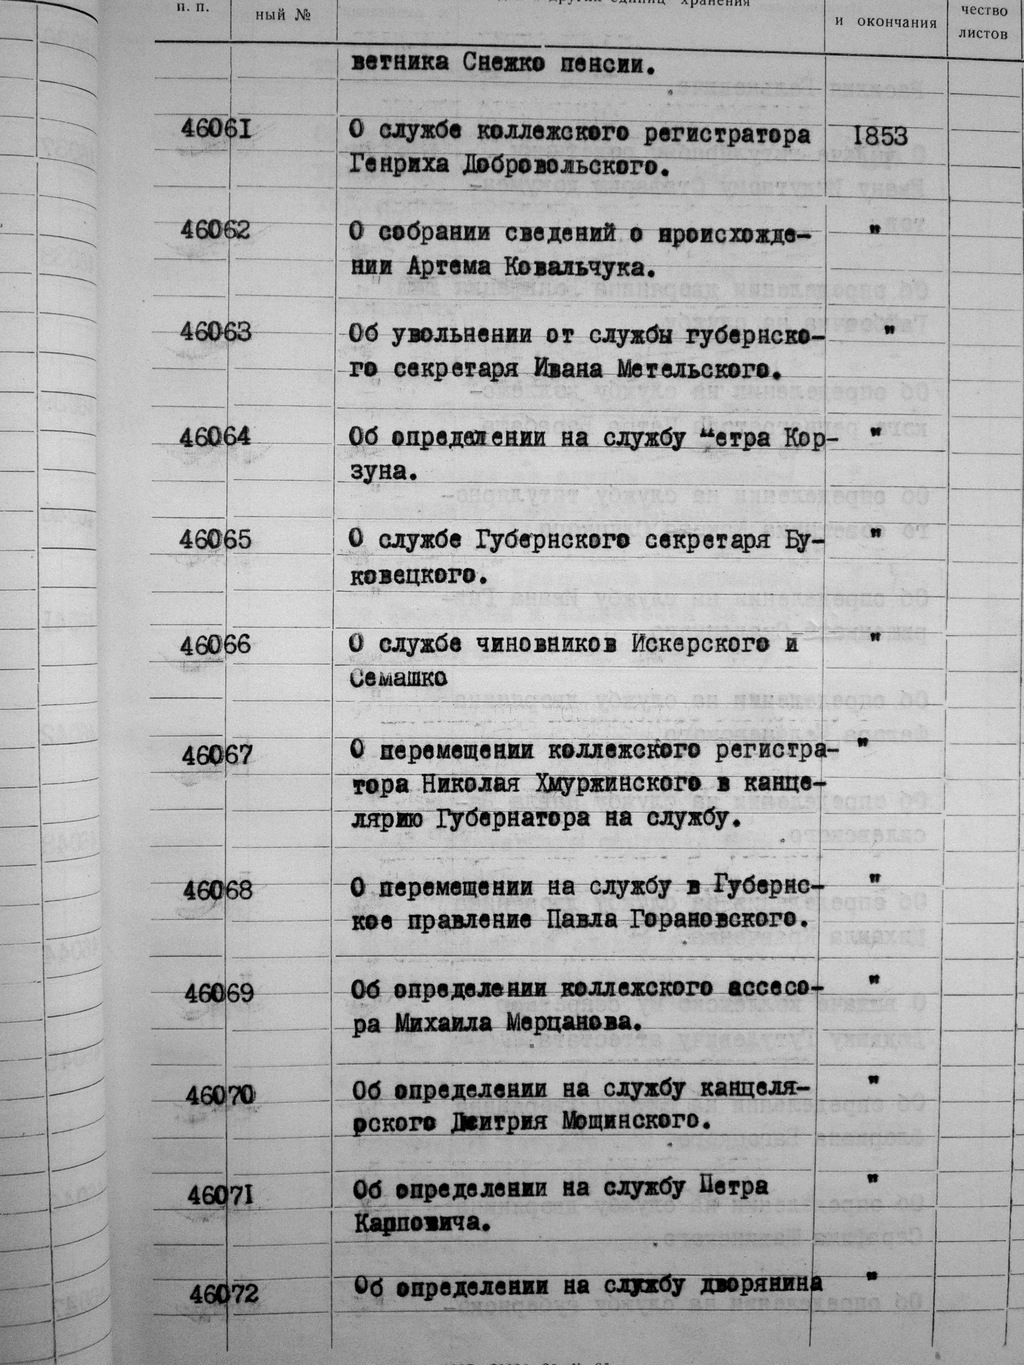 п. п.
ный №
других единиц хранения
и окончания
чество
листов
ветника Снежко пенсии.
46061 О службе коллежского регистратора 1853
Генриха Добровольского.
46062 О собрании сведений о происхожде- "
нии Артема Ковальчука.
46063 Об увольнении от службы губернско- "
го секретаря Ивана Метельского.
46064 Об определении на службу Петра Кор- "
зуна.
46065 О службе Губернского секретаря Бу- "
ковецкого.
46066 О службе чиновников Искерского и "
Семашко
46067 О перемещении коллежского регистра- "
тора Николая Хмуржинского в канце-
лярию Губернатора на службу.
46068 О перемещении на службу в Губернс- "
кое правление Павла Горановского.
46069 Об определении коллежского ассесо- "
ра Михаила Мерцанова.
46070 Об определении на службу канцеля- "
рского Дмитрия Мощинского.
46071 Об определении на службу Петра "
Карповича.
46072 Об определении на службу дворянина "